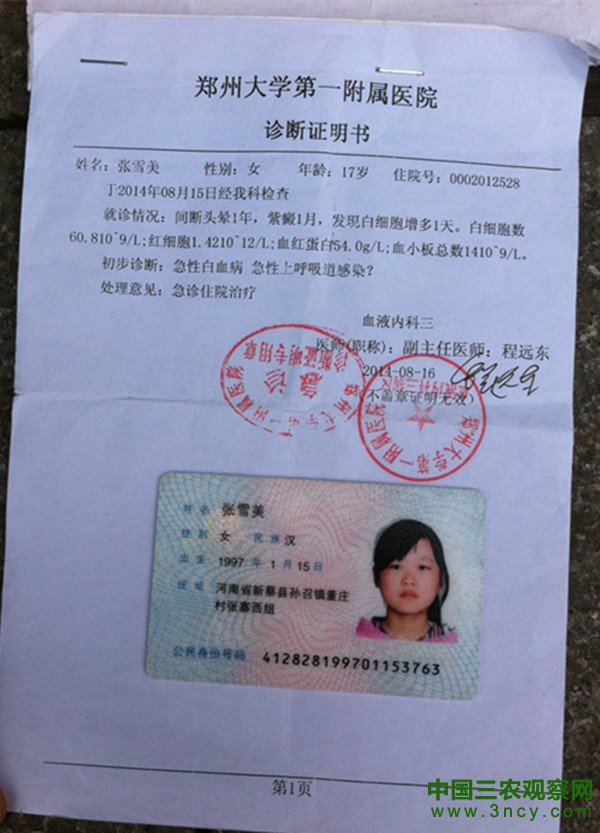 郑州大学第一附属医院
诊断证明书
姓名：张雪美 性别：女 年龄：17岁 住院号：0002012528
于2014年08月15日经我科检查
就诊情况：间断头晕1年，紫癜1月，发现白细胞增多1天。白细胞数
60.810^9/L;红细胞1.4210^12/L;血红蛋白54.0g/L;血小板总数1410^9/L。
初步诊断：急性白血病 急性上呼吸道感染？
处理意见：急诊住院治疗
血液内科三
医师(职称)：副主任医师：程远东
2014-08-16
(不盖章证明无效)
急诊
诊断证明专用章
郑州大学第一附属医院
姓名 张雪美
性别 女 民族 汉
出生 1997 年 1 月 15 日
住址 河南省新蔡县孙召镇董庄
村张寨西组
公民身份号码 412828199701153763
第1页
中国三农观察网
www.3ncy.com